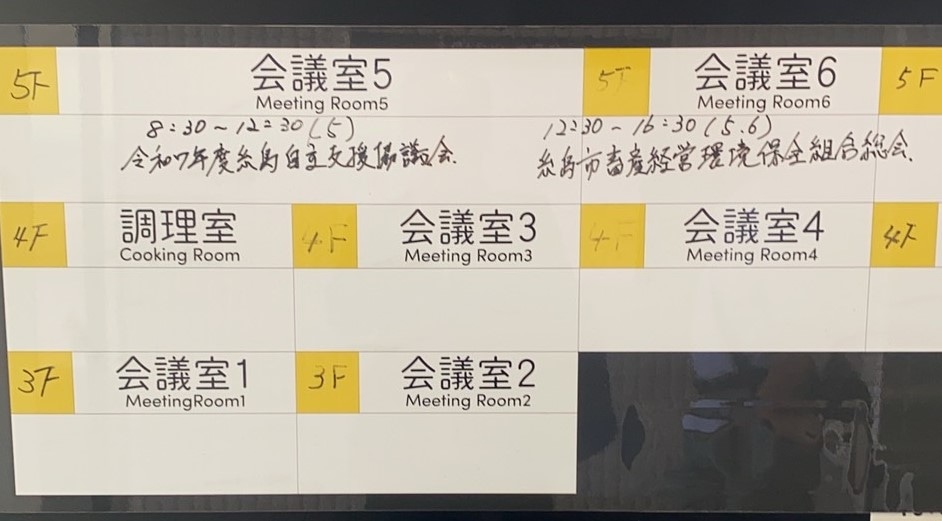 5F 会議室5 5F 会議室6 5F
Meeting Room5 Meeting Room6
8:30~12:30(5) 12:30~16:30(5.6)
令和7年度糸島自立支援協議会. 糸島市畜産経営環境保全組合総会.
4F 調理室 4F 会議室3 4F 会議室4 4F
Cooking Room Meeting Room3 Meeting Room4
3F 会議室1 3F 会議室2
MeetingRoom1 Meeting Room2